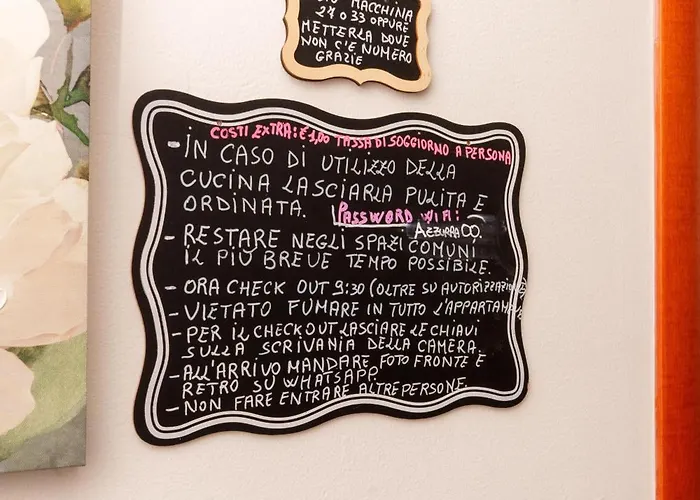 MACCHINA
27 O 33 OPPURE
METTERLA DOVE
NON C'È NUMERO
GRAZIE
COSTI EXTRA: € 1,00 TASSA DI SOGGIORNO A PERSONA
- IN CASO DI UTILIZZO DELLA
CUCINA LASCIARLA PULITA E
ORDINATA. PASSWORD WIFI:
AZZURRA00.
- RESTARE NEGLI SPAZI COMUNI
IL PIÙ BREVE TEMPO POSSIBILE.
- ORA CHECK OUT 9:30 (OLTRE SU AUTORIZZAZIONE
- VIETATO FUMARE IN TUTTO L'APPARTAM
- PER IL CHECK OUT LASCIARE LE CHIAVI
SULLA SCRIVANIA DELLA CAMERA.
- ALL'ARRIVO MANDARE FOTO FRONTE E
RETRO SU WHATSAPP.
- NON FARE ENTRARE ALTRE PERSONE.